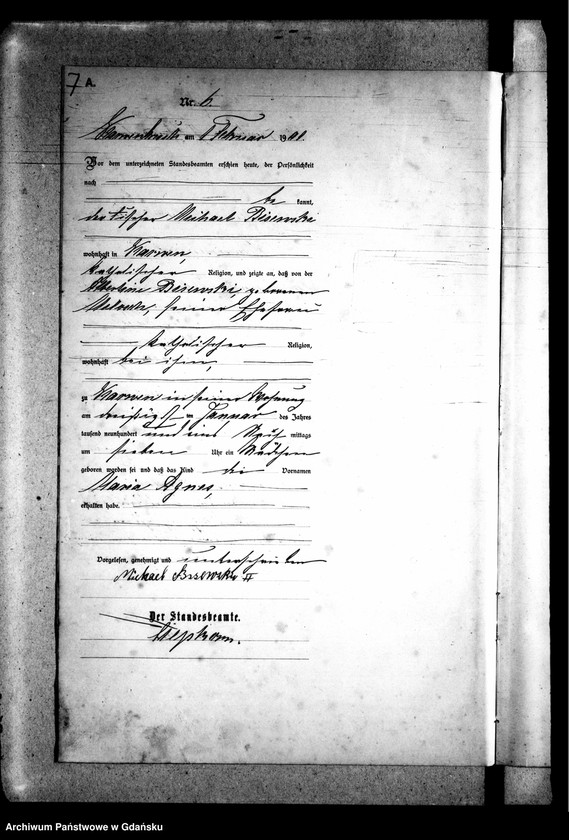 7 A.
Nr. 6.
am 1 Februar 1901.
Vor dem unterzeichneten Standesbeamten erschien heute, der Persönlichkeit
nach
be kannt,
der Fischer Michael Bisewski
wohnhaft in Karwen,
katholischer Religion, und zeigte an, daß von der
Albertine Bisewski, geborenen
seiner Ehefrau
katholischer Religion,
wohnhaft bei ihm,
zu Karwen in seiner Wohnung
am dreißigst en Januar des Jahres
tausend neunhundert und eins Nach mittags
um sieben Uhr ein Mädchen
geboren worden sei und daß das Kind die Vornamen
Maria Agnes,
erhalten habe.
Vorgelesen, genehmigt und unterschrieben
Michael Bisewski II
Der Standesbeamte.
Archiwum Państwowe w Gdańsku